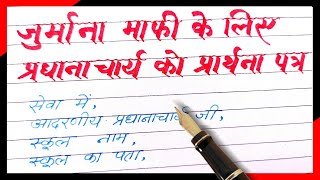 जुर्माना माफी के लिए
प्रधानाचार्य को प्रार्थना पत्र
सेवा में,
आदरणीय प्रधानाचार्य जी,
स्कूल नाम,
स्कूल का पता,